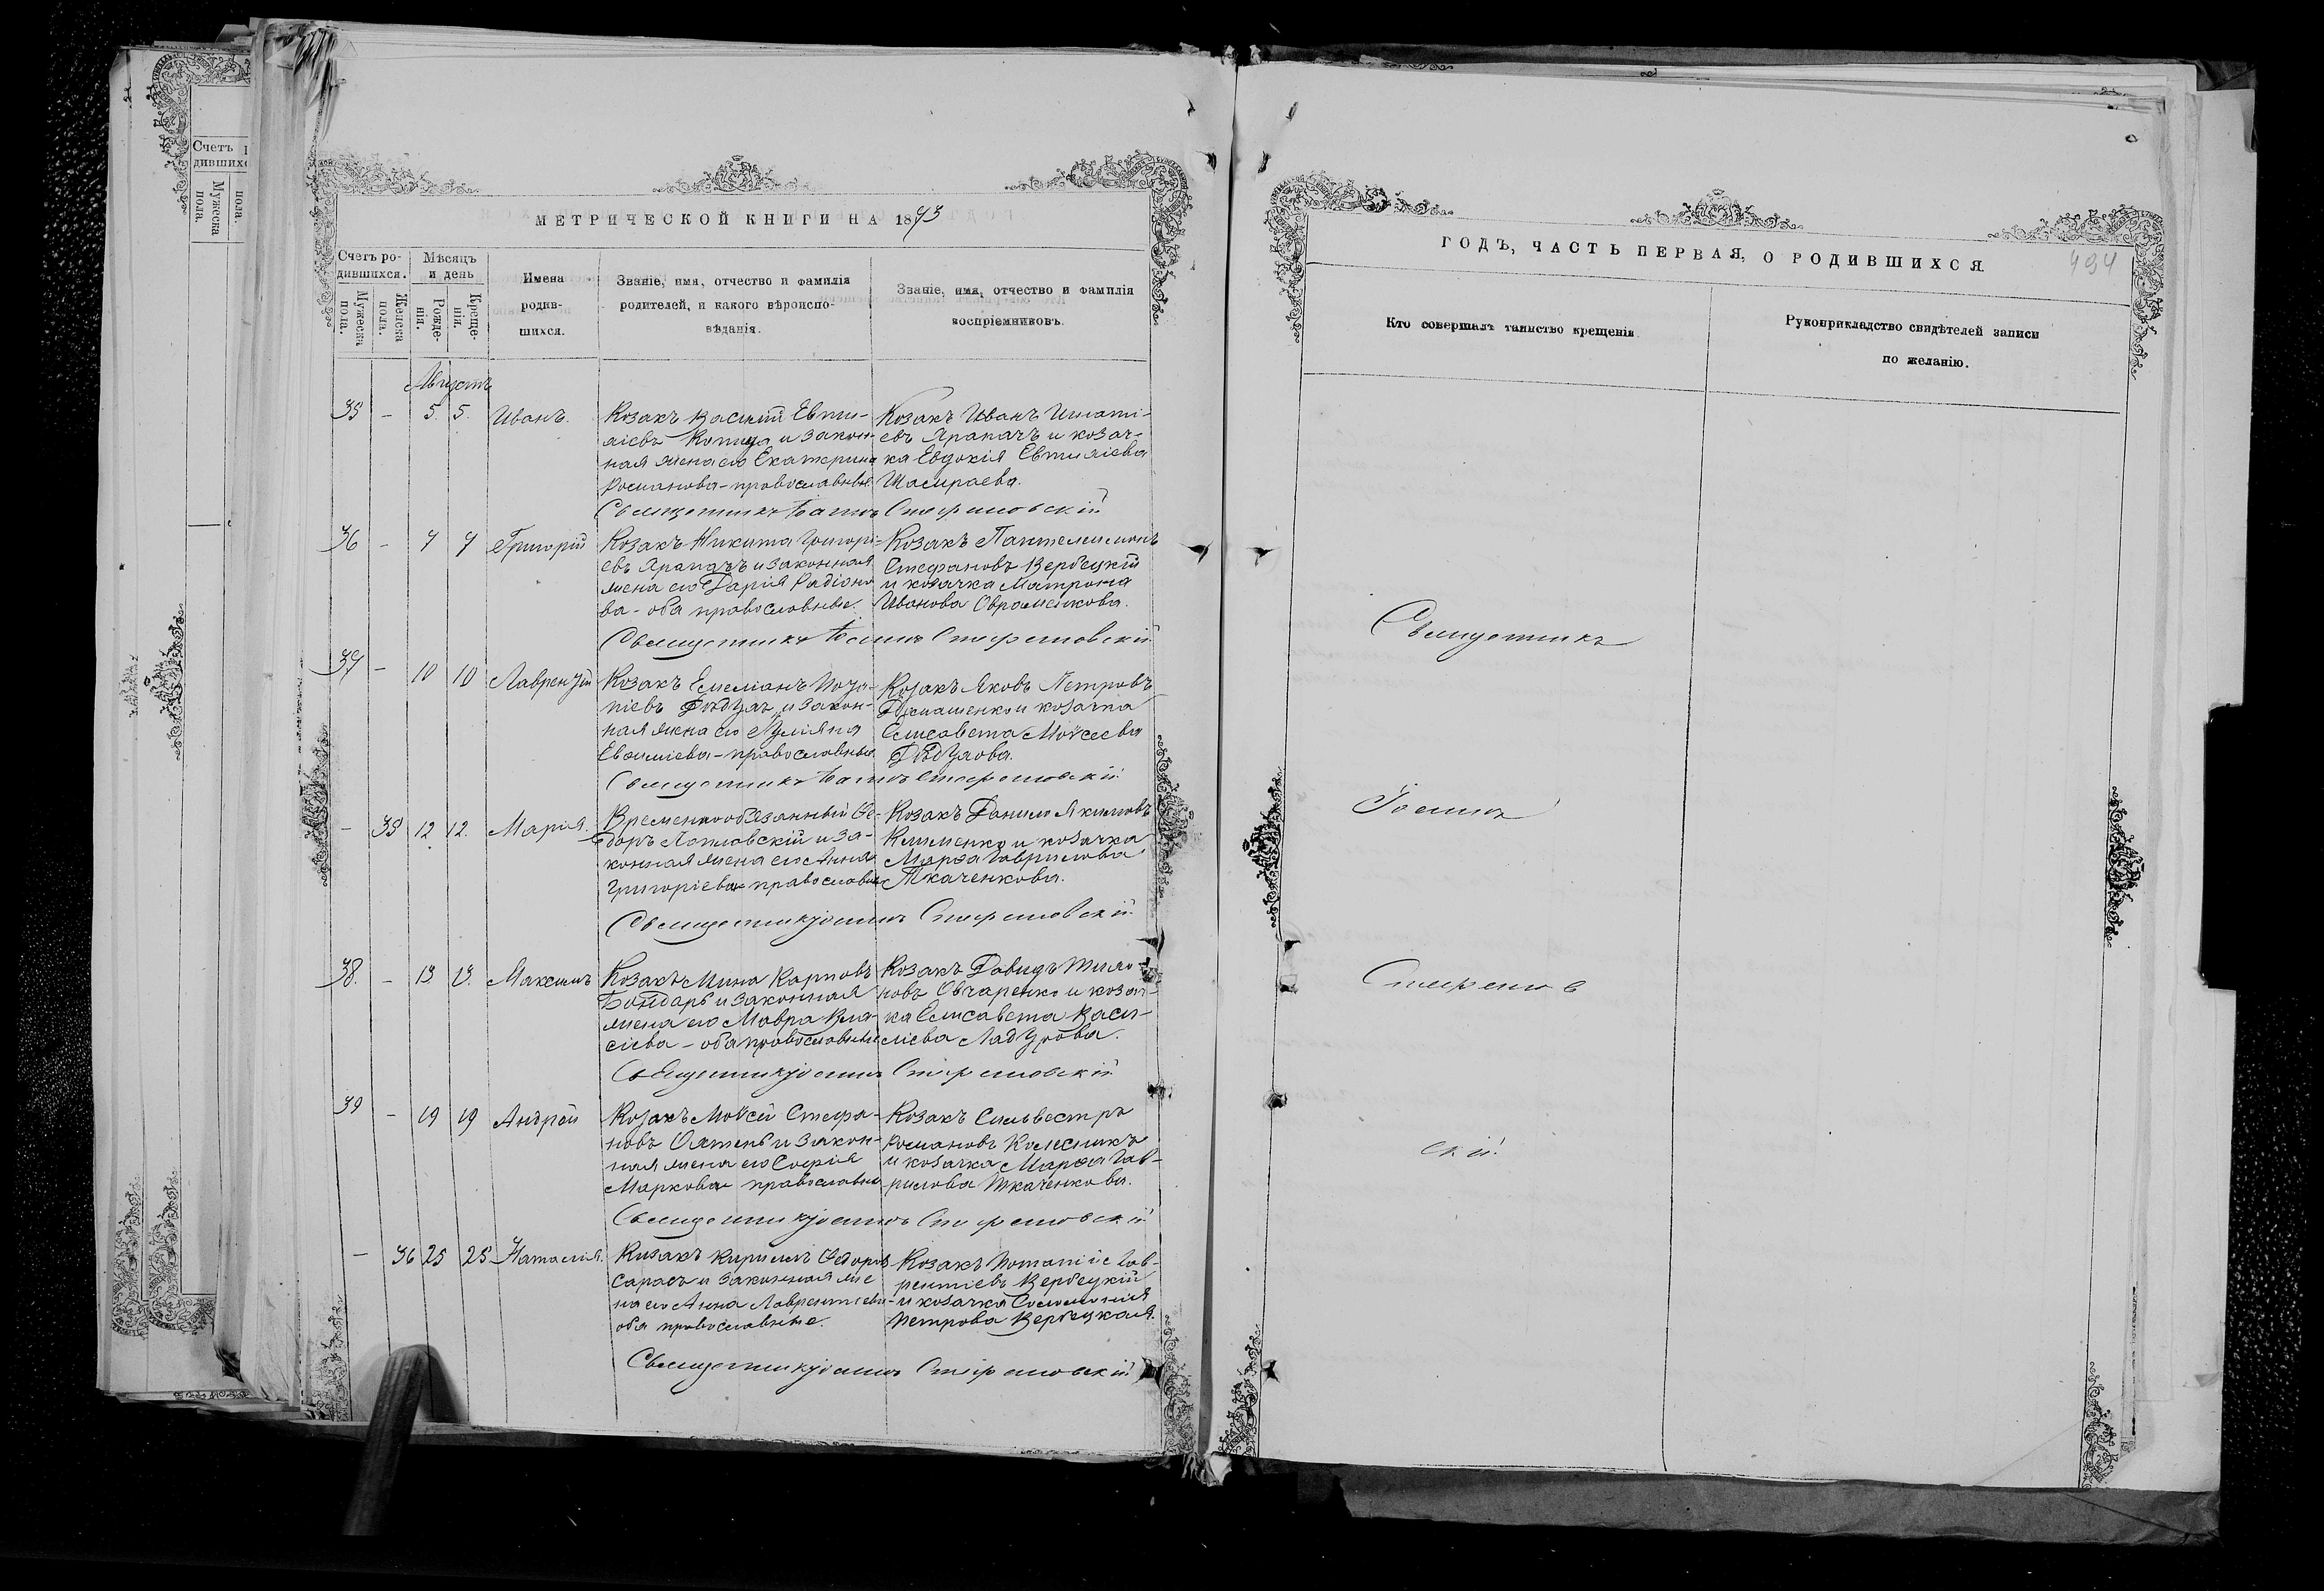 Счетъ
дившихс
Мужеска
пола.
пола.
МЕТРИЧЕСКОЙ КНИГИ НА 1873
Счетъ ро-
дившихся.
Мѣсяцъ
и день
Имена
родив-
шихся.
Званіе, имя, отчество и фамилія
родителей, и какого вѣроиспо-
вѣданія.
Званіе, имя, отчество и фамилія
воспріемниковъ.
Мужеска
пола.
Женска
пола.
Рожде-
нія.
Креще-
нія.
Августъ
35 - 5. 5. Иванъ.
Козакъ Василій Евти-
хіевъ и закон-
ная жена его Екатерина
Романова - православные.
Козакъ Иванъ Игнаті-
евъ Ярапачъ и козач-
ка Евдокія Евтихіева
Священникъ Іоаннъ Стефановскій
36 - 7 7 Григорій
Козакъ Никита Григорі-
евъ Ярапачъ и законная
жена его Дарія Радіоно
ва - оба православные.
Козакъ Пантелимонъ
Стефановъ Вербецкій
и козачка Матрона
Иванова Авраменкова.
Священникъ Іоаннъ Стефановскій
37 - 10 10 Лаврентій
Козакъ Емеліанъ Пота-
піевъ и закон-
ная жена его Уліяна
Евфиміева - православные.
Козакъ Яковъ Петровъ
Ромашенко и козачка
Елисавета Моѵсеева
Священникъ Іоаннъ Стефановскій
- 35 12 12. Марія.
Временнообязанный Ѳе-
доръ Козловскій и за-
конная жена его Анна
Григоріева - православные
Козакъ Данило Якимовъ
Клименко и козачка
Марѳа Гаврилова
Ткаченкова.
Священникъ Іоаннъ Стефановскій
38. - 13 13. Максимъ
Козакъ Мина Карповъ
Бондарь и законная
жена его Мавра Вла-
сіева - оба православные
Козакъ Давидъ Тимо-
новъ Овчаренко и козач-
ка Елисавета Васи-
ліева
Священникъ Іоаннъ Стефановскій
39 - 19 19 Андрей
Козакъ Моѵсей Стефа-
новъ и закон-
ная жена его Софія
Маркова - православные
Козакъ Сильвестръ
Романовъ Колесникъ
и козачка Марѳа Гав-
рилова Ткаченкова.
Священникъ Іоаннъ Стефановскій
- 36 25 25 Наталія.
Козакъ Кирилъ Ѳедоровъ
и законная же
на его Анна Лаврентіева -
оба православные.
Козакъ Потапій Лав-
рентіевъ Вербецкій
и козачка Соломонія
Петрова Вербецкая.
Священникъ Іоаннъ Стефановскій
ГОДЪ, ЧАСТЬ ПЕРВАЯ, О РОДИВШИХСЯ
494
Кто совершалъ таинство крещенія
Рукоприкладство свидѣтелей записи
по желанію.
Священникъ
Іоаннъ
Стефанов
скій